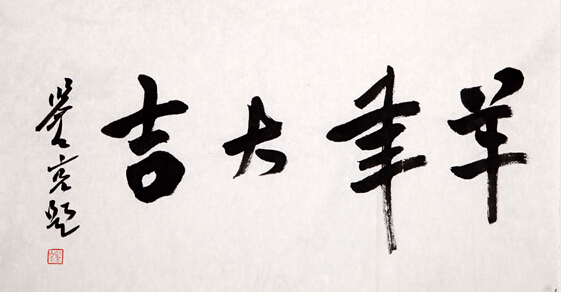 羊年大吉